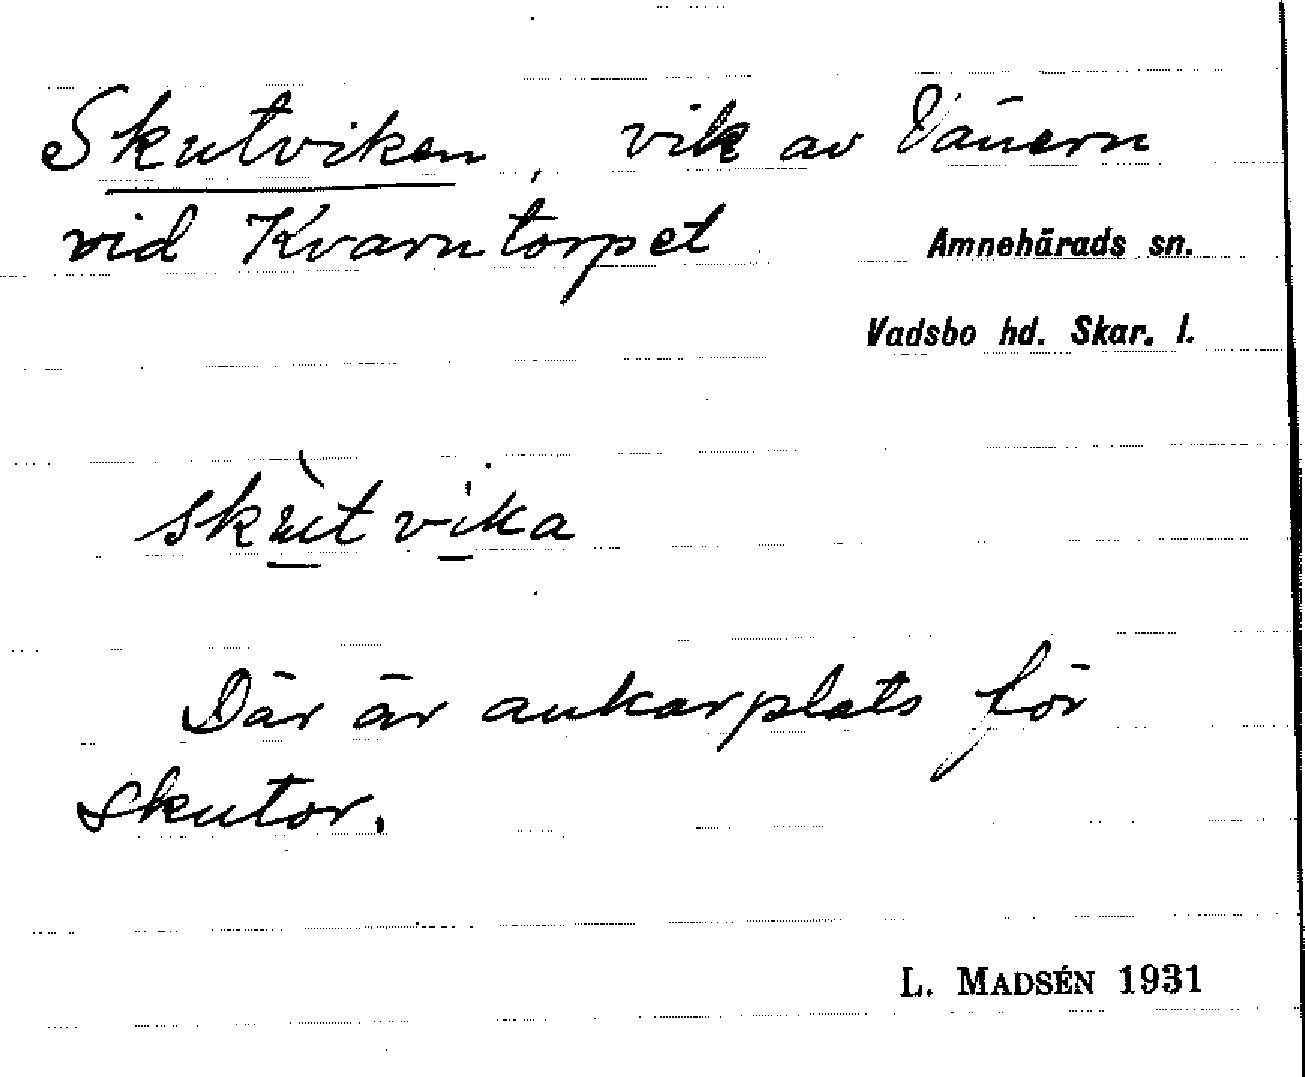 Skutviken, vik av Vänern
vid Kvarntorpet
Amnehärads sn.
Vadsbo hd. Skar. l.
skùtvika
Där är ankarplats för
skutor.
L. MADSÉN 1931